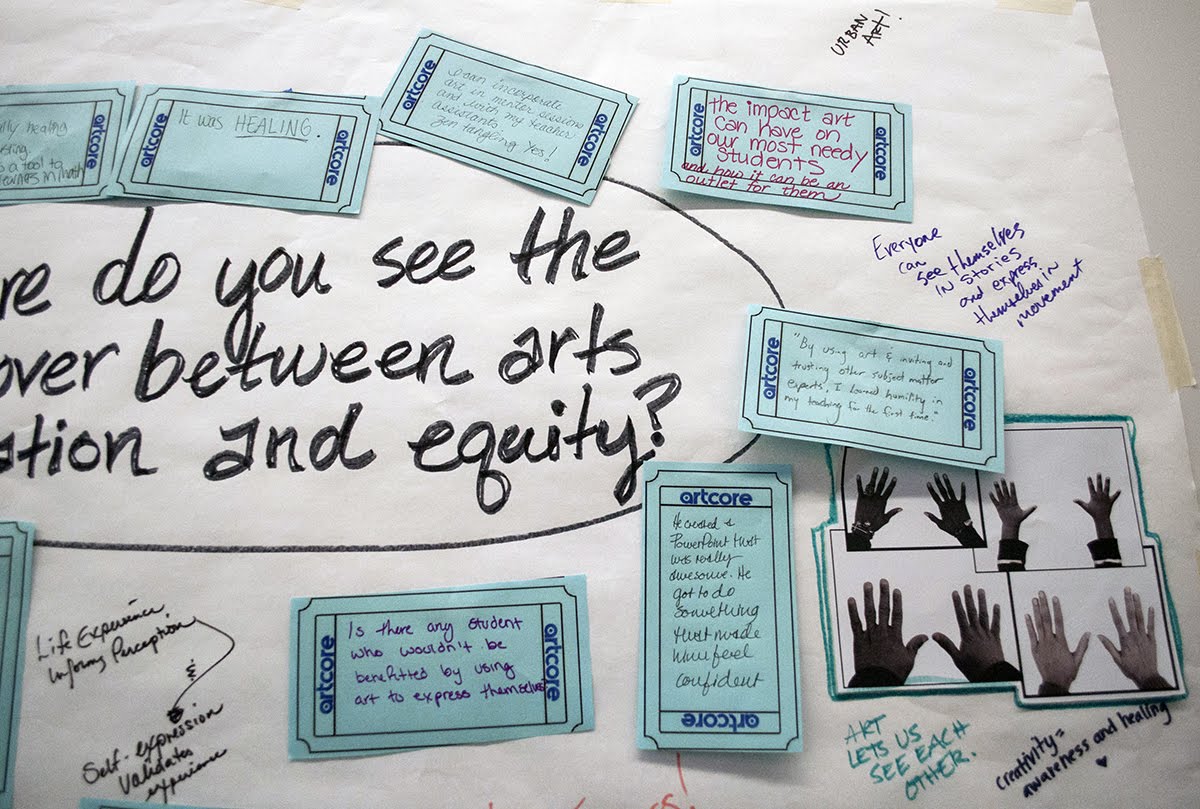 URBAN
ART!
healing
a tool to
artcore
artcore
It was HEALING.
artcore
artcore
I can incorporate
art in mentor sessions
and with my teacher
assistants
Zen tangling Yes!
artcore
artcore
the impact art
can have on
our most needy
students
and how it can be an
outlet for them
artcore
re do you see the
over between arts
ation and equity?
Everyone
can
see themselves
in stories
and express
themselves in
movement
artcore
"By using art & inviting and
trusting other subject matter
experts, I learned humility in
my teaching for the first time."
artcore
artcore
He created a
PowerPoint that
was really
awesome. He
got to do
something
that made
him feel
confident
artcore
artcore
Is there any student
who wouldn't be
benefitted by using
art to express themselves
artcore
Life Experience
Informs Perception
&
Self-expression
Validates
experience
ART
LETS US
SEE EACH
OTHER.
creativity=
awareness and healing